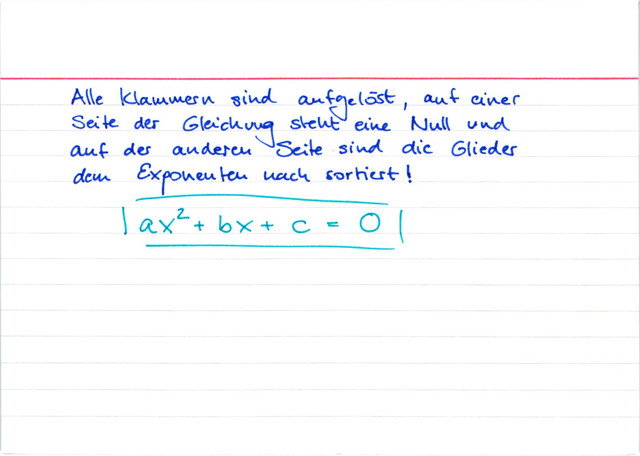 Alle Klammern sind aufgelöst, auf einer
Seite der Gleichung steht eine Null und
auf der anderen Seite sind die Glieder
dem Exponenten nach sortiert!
ax² + bx + c = 0